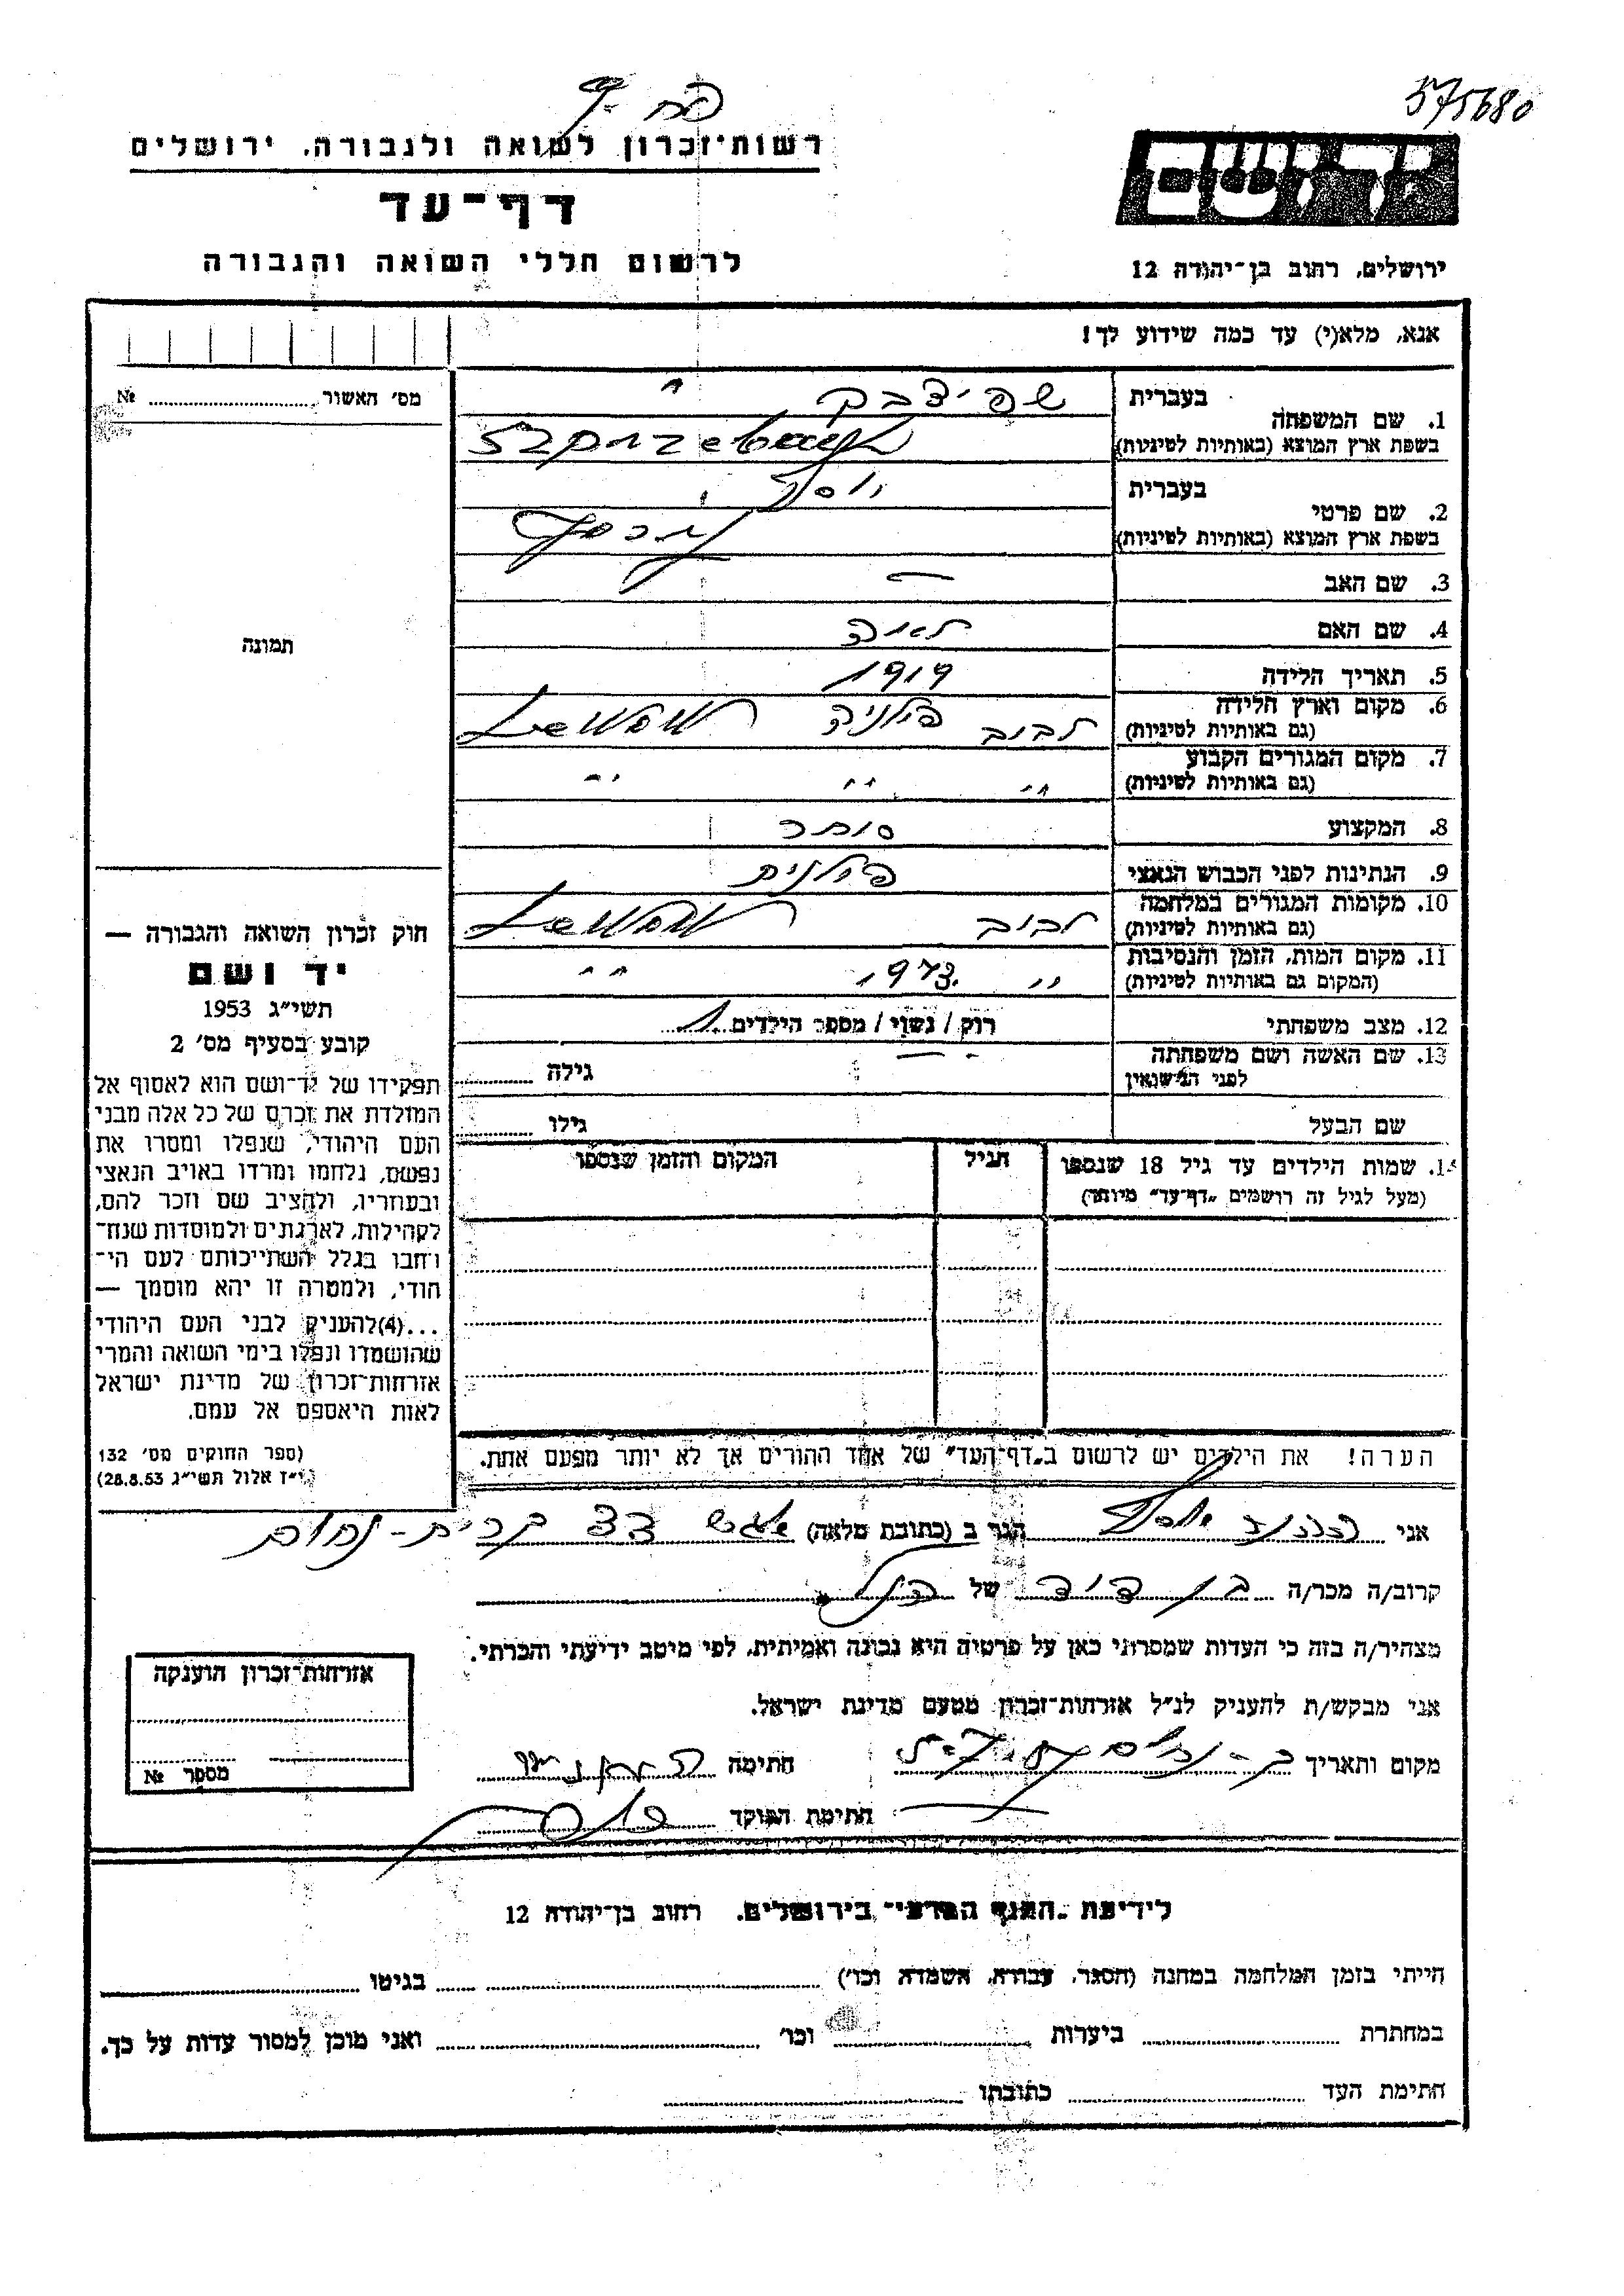 575680
רשות־זכרון לשואה ולגבורה, ירושלים
דף־עד
לרשום חללי השואה והגבורה
יד ושם
ירושלים, רחוב בן־יהודה 12
אנא, מלא(י) עד כמה שידוע לך!
מס׳ האשור ........ №
תמונה
חוק זכרון השואה והגבורה —
יד ושם
תשי״ג 1953
קובע בסעיף מס׳ 2
תפקידו של יד־ושם הוא לאסוף אל
המולדת את זכרם של כל אלה מבני
העם היהודי, שנפלו ומסרו את
נפשם, נלחמו ומרדו באויב הנאצי
ובעוזריו, ולהציב שם וזכר להם,
לקהילות, לארגונים ולמוסדות שנח־
רחבו בגלל השתייכותם לעם הי־
הודי, ולמטרה זו יהא מוסמך —
...(4)להעניק לבני העם היהודי
שהושמדו ונפלו בימי השואה והמרי
אזרחות־זכרון של מדינת ישראל
לאות היאספם אל עמם.
(ספר החוקים מס׳ 132
י״ז אלול תשי״ג 28.8.53)
1. שם המשפחה
בעברית
בשפת ארץ המוצא (באותיות לטיניות)
2. שם פרטי
בעברית יוסף
בשפת ארץ המוצא (באותיות לטיניות)
3. שם האב —
4. שם האם לאה
5. תאריך הלידה 1919
6. מקום וארץ הלידה לבוב פולניה
(גם באותיות לטיניות)
7. מקום המגורים הקבוע ״ ״ ״
(גם באותיות לטיניות)
8. המקצוע סוחר
9. הנתינות לפני הכבוש הנאצי פולנית
10. מקומות המגורים במלחמה לבוב
(גם באותיות לטיניות)
11. מקום המות, הזמן והנסיבות ״ 1943 ״
(המקום גם באותיות לטיניות)
12. מצב משפחתי רוק / נשוי / מספר הילדים 1
13. שם האשה ושם משפחתה — גילה
לפני הנישואין
שם הבעל גילו
14. שמות הילדים עד גיל 18 שנספו הגיל המקום והזמן שנספו
(מעל לגיל זה רושמים „דף־עד״ מיוחד)
הערה! את הילדים יש לרשום ב„דף־העד״ של אחד ההורים אך לא יותר מפעם אחת.
אני הגר ב (כתובת מלאה) קרית-נחום
קרוב/ה מכר/ה בן דוד של הנ״ל
מצהיר/ה בזה כי העדות שמסרתי כאן על פרטיה היא נכונה ואמיתית, לפי מיטב ידיעתי והכרתי.
אני מבקש/ת להעניק לנ״ל אזרחות־זכרון מטעם מדינת ישראל.
מקום ותאריך חתימה
חתימת הפוקד
אזרחות־זכרון הוענקה
מספר №
לידיעת רחוב בן־יהודה 12
הייתי בזמן המלחמה במחנה (הסגר, עבודה, השמדה וכו׳) בגיטו
במחתרת ביערות וכו׳ ואני מוכן למסור עדות על כך.
חתימת העד כתובתו